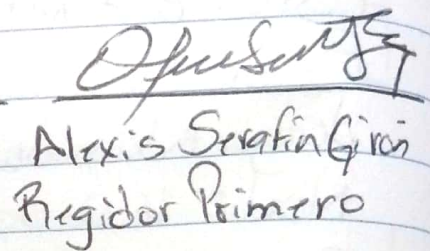 Alexis Serafin Girón
Regidor Primero